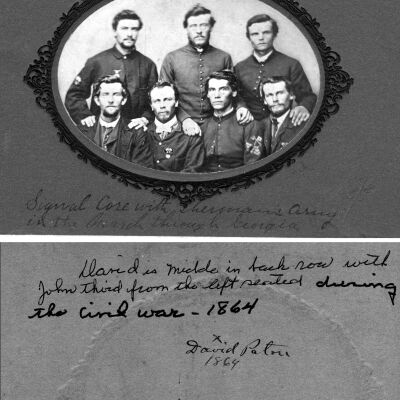 Signal Core with Shermans Army
in the March through Georgia
David is middle in back row with
John third from the left seated during
the Civil War - 1864
x
David Paton
1864